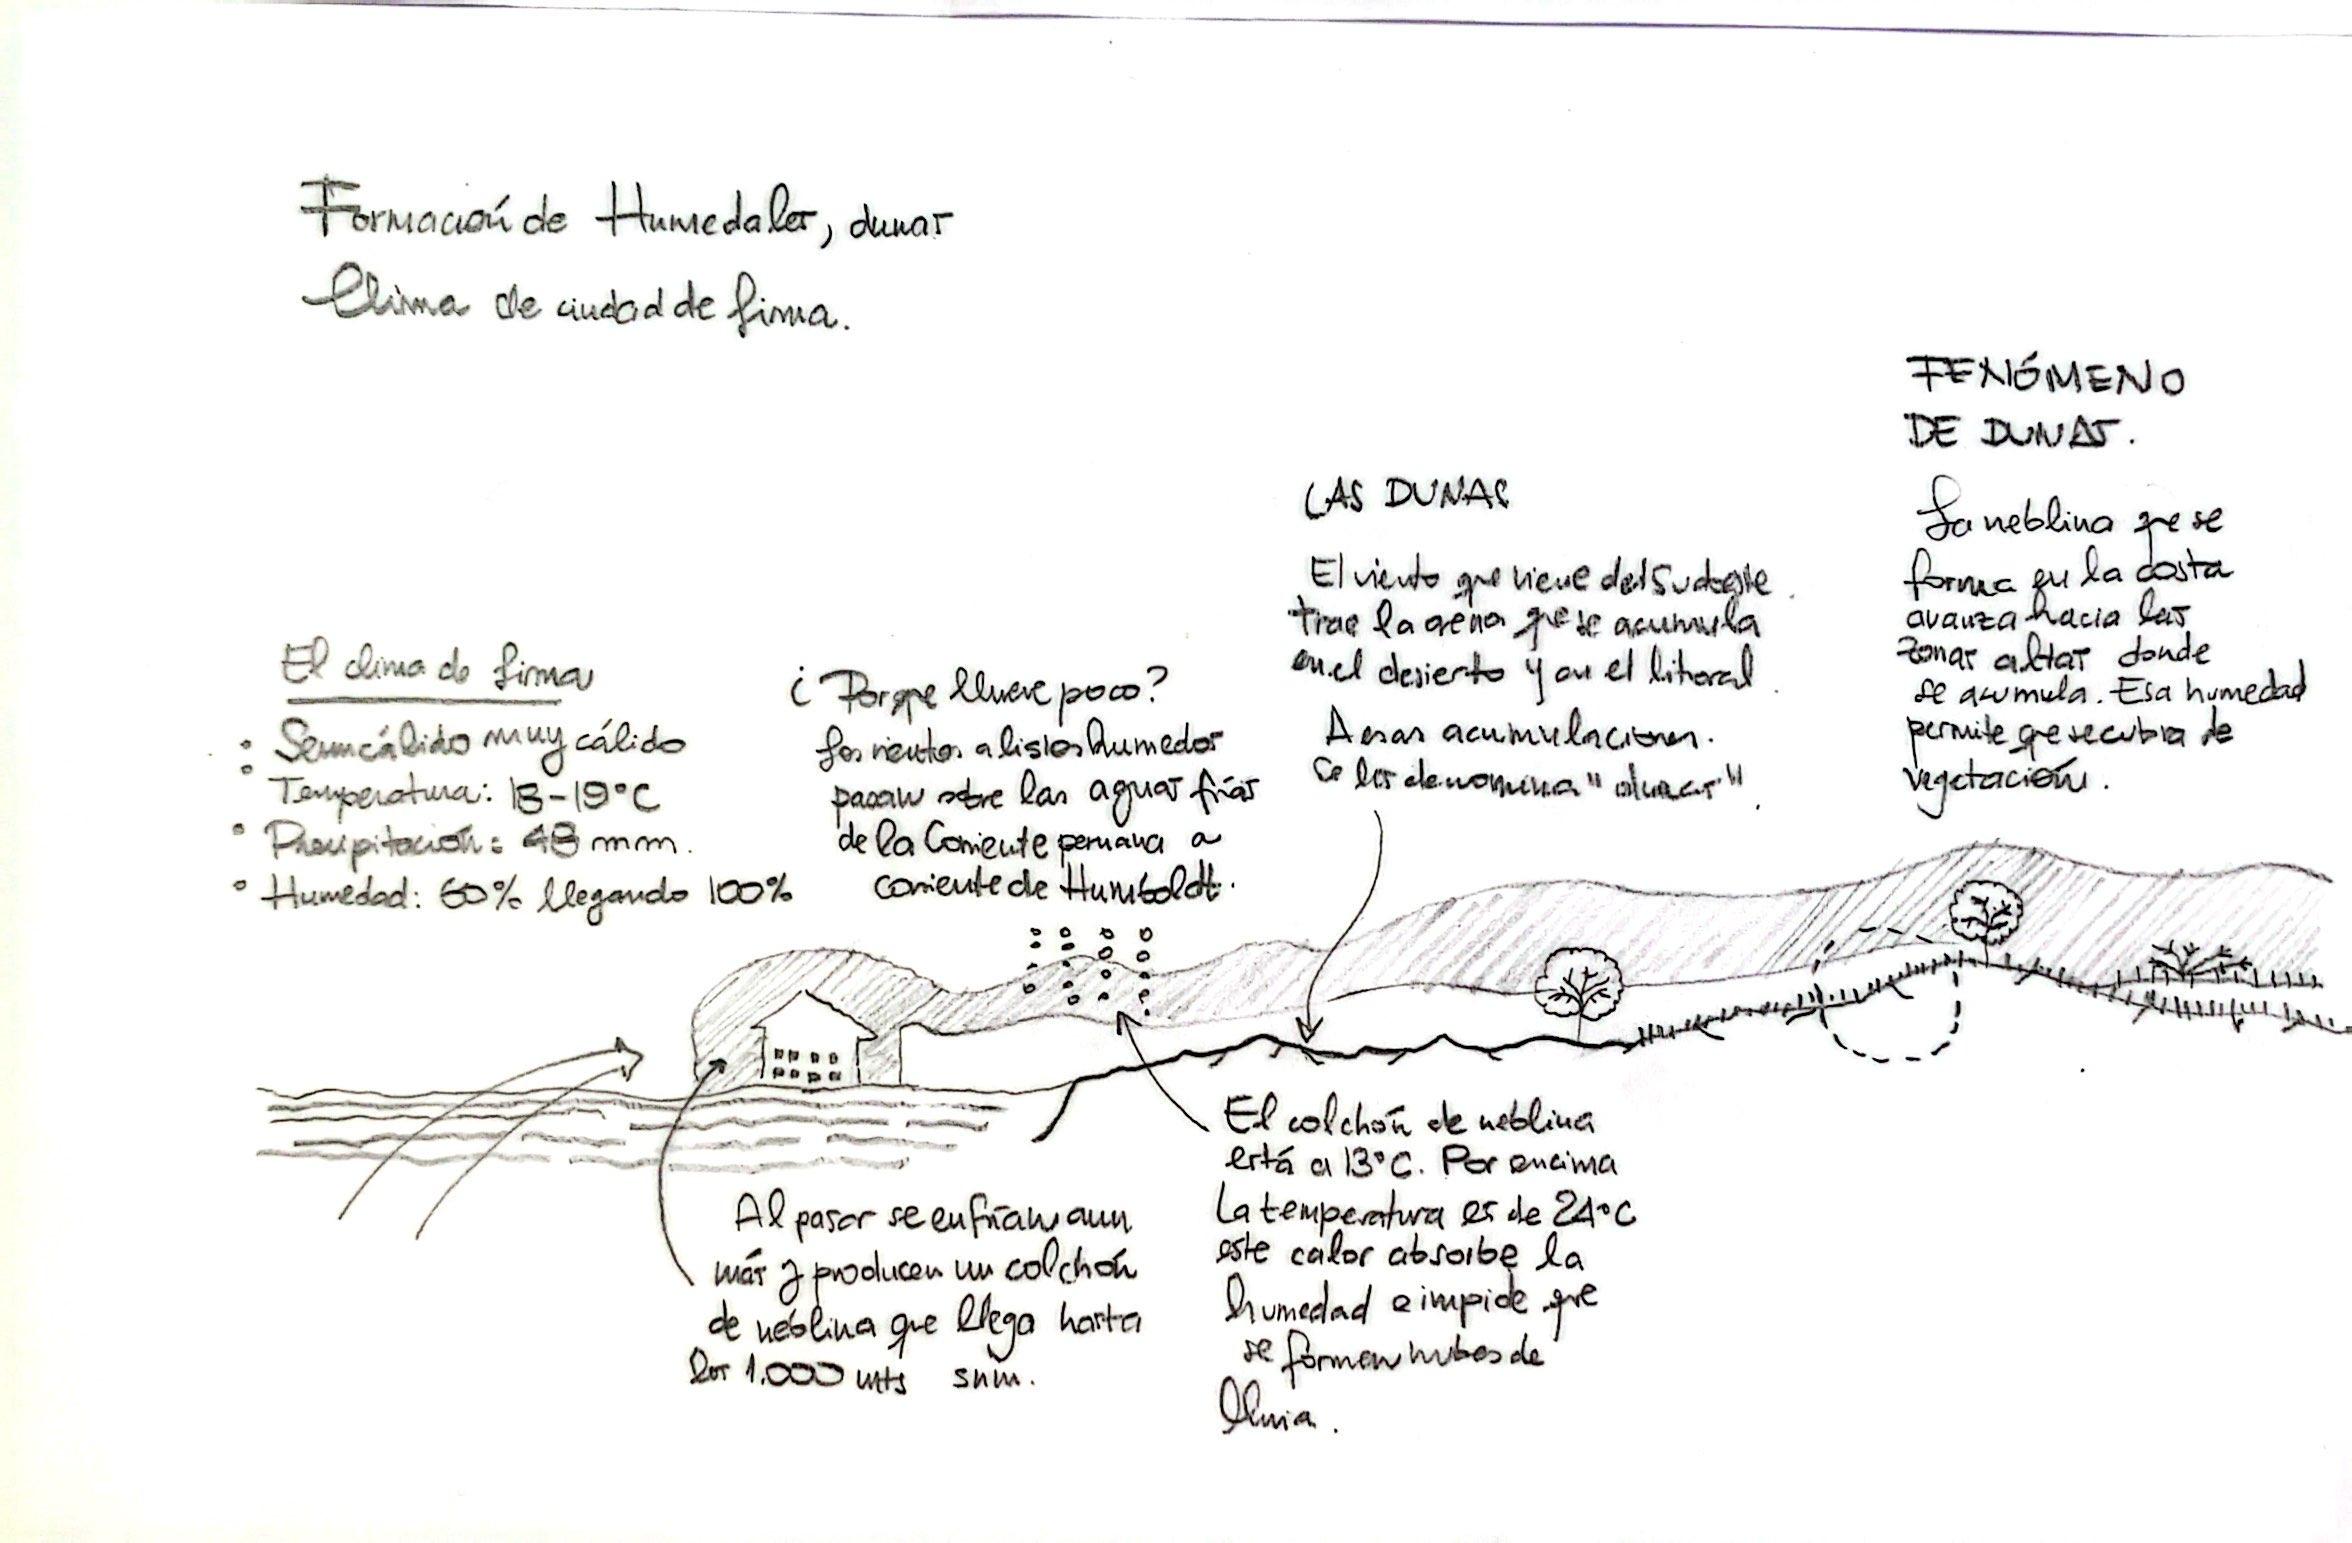 Formación de Humedales, dunas
Clima de ciudad de Lima.
El clima de Lima
Semicálido muy cálido
Temperatura: 18-19°C
Precipitación: 48 mm.
Humedad: 60% llegando 100%
¿Porque llueve poco?
Los vientos alisios humedos
pasan sobre las aguas frías
de la Corriente peruana a
corriente de Humboldt.
LAS DUNAS
El viento que viene del Sudoeste
trae la arena que se acumula
en el desierto y en el litoral
A esas acumulaciones.
se les denomina "dunas".
FENÓMENO
DE DUNAS.
La neblina que se
forma en la costa
avanza hacia las
zonas altas donde
se acumula. Esa humedad
permite que se cubra de
vegetación.
Al pasar se enfrían aun
más y producen un colchón
de neblina que llega hasta
los 1.000 mts snm.
El colchón de neblina
está a 13°C. Por encima
La temperatura es de 24°C
este calor absorbe la
humedad e impide que
se formen nubes de
lluvia.